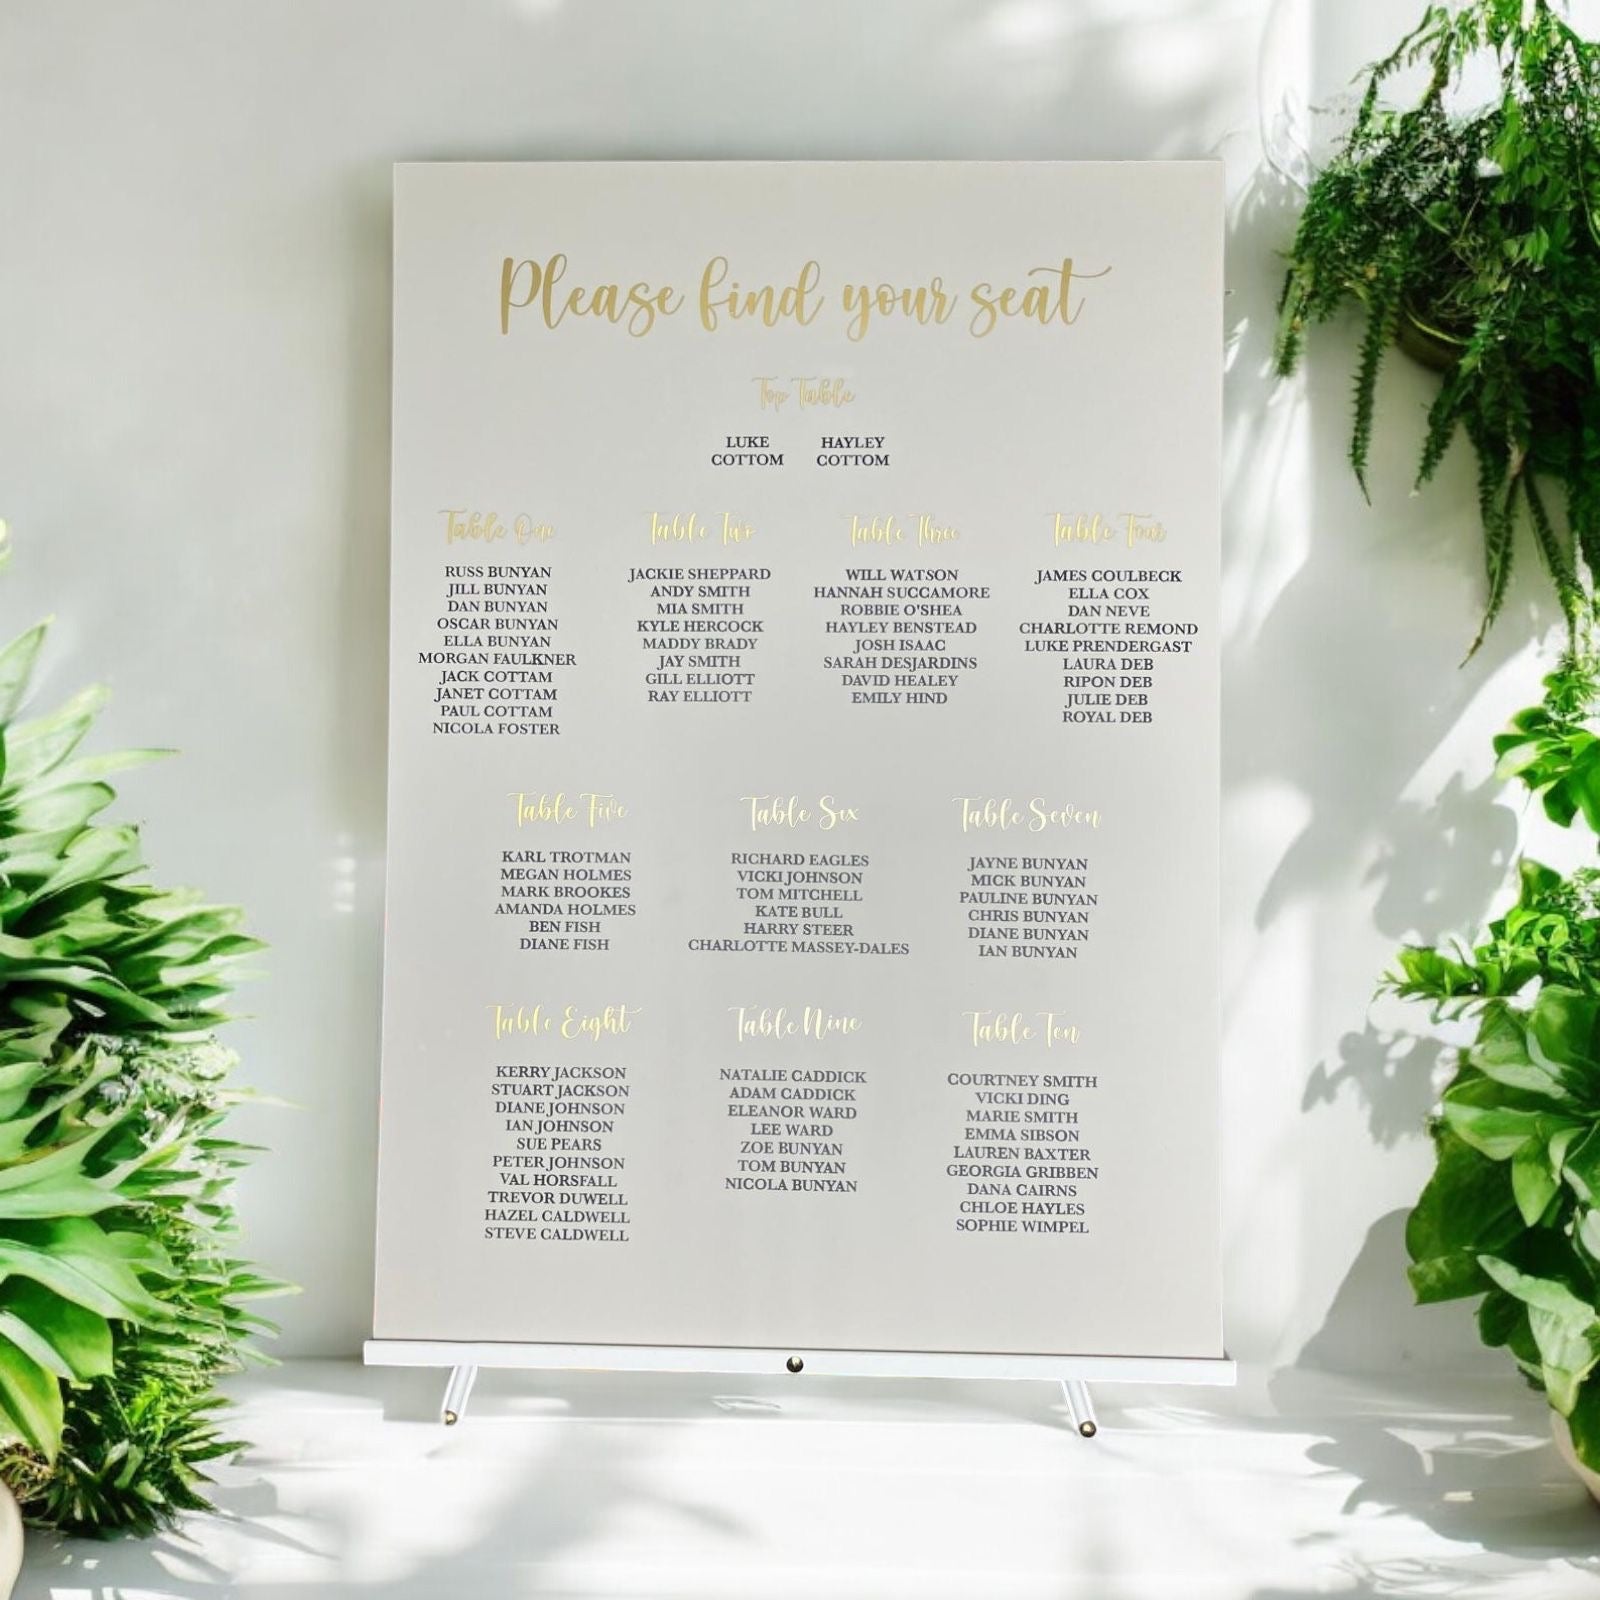 Please find your seat
Top Table
LUKE COTTOM
HAYLEY COTTOM
Table One
RUSS BUNYAN
JILL BUNYAN
DAN BUNYAN
OSCAR BUNYAN
ELLA BUNYAN
MORGAN FAULKNER
JACK COTTAM
JANET COTTAM
PAUL COTTAM
NICOLA FOSTER
Table Two
JACKIE SHEPPARD
ANDY SMITH
MIA SMITH
KYLE HERCOCK
MADDY BRADY
JAY SMITH
GILL ELLIOTT
RAY ELLIOTT
Table Three
WILL WATSON
HANNAH SUCCAMORE
ROBBIE O'SHEA
HAYLEY BENSTEAD
JOSH ISAAC
SARAH DESJARDINS
DAVID HEALEY
EMILY HIND
Table Four
JAMES COULBECK
ELLA COX
DAN NEVE
CHARLOTTE REMOND
LUKE PRENDERGAST
LAURA DEB
RIPON DEB
JULIE DEB
ROYAL DEB
Table Five
KARL TROTMAN
MEGAN HOLMES
MARK BROOKES
AMANDA HOLMES
BEN FISH
DIANE FISH
Table Six
RICHARD EAGLES
VICKI JOHNSON
TOM MITCHELL
KATE BULL
HARRY STEER
CHARLOTTE MASSEY-DALES
Table Seven
JAYNE BUNYAN
MICK BUNYAN
PAULINE BUNYAN
CHRIS BUNYAN
DIANE BUNYAN
IAN BUNYAN
Table Eight
KERRY JACKSON
STUART JACKSON
DIANE JOHNSON
IAN JOHNSON
SUE PEARS
PETER JOHNSON
VAL HORSFALL
TREVOR DUWELL
HAZEL CALDWELL
STEVE CALDWELL
Table Nine
NATALIE CADDICK
ADAM CADDICK
ELEANOR WARD
LEE WARD
ZOE BUNYAN
TOM BUNYAN
NICOLA BUNYAN
Table Ten
COURTNEY SMITH
VICKI DING
MARIE SMITH
EMMA SIBSON
LAUREN BAXTER
GEORGIA GRIBBEN
DANA CAIRNS
CHLOE HAYLES
SOPHIE WIMPEL